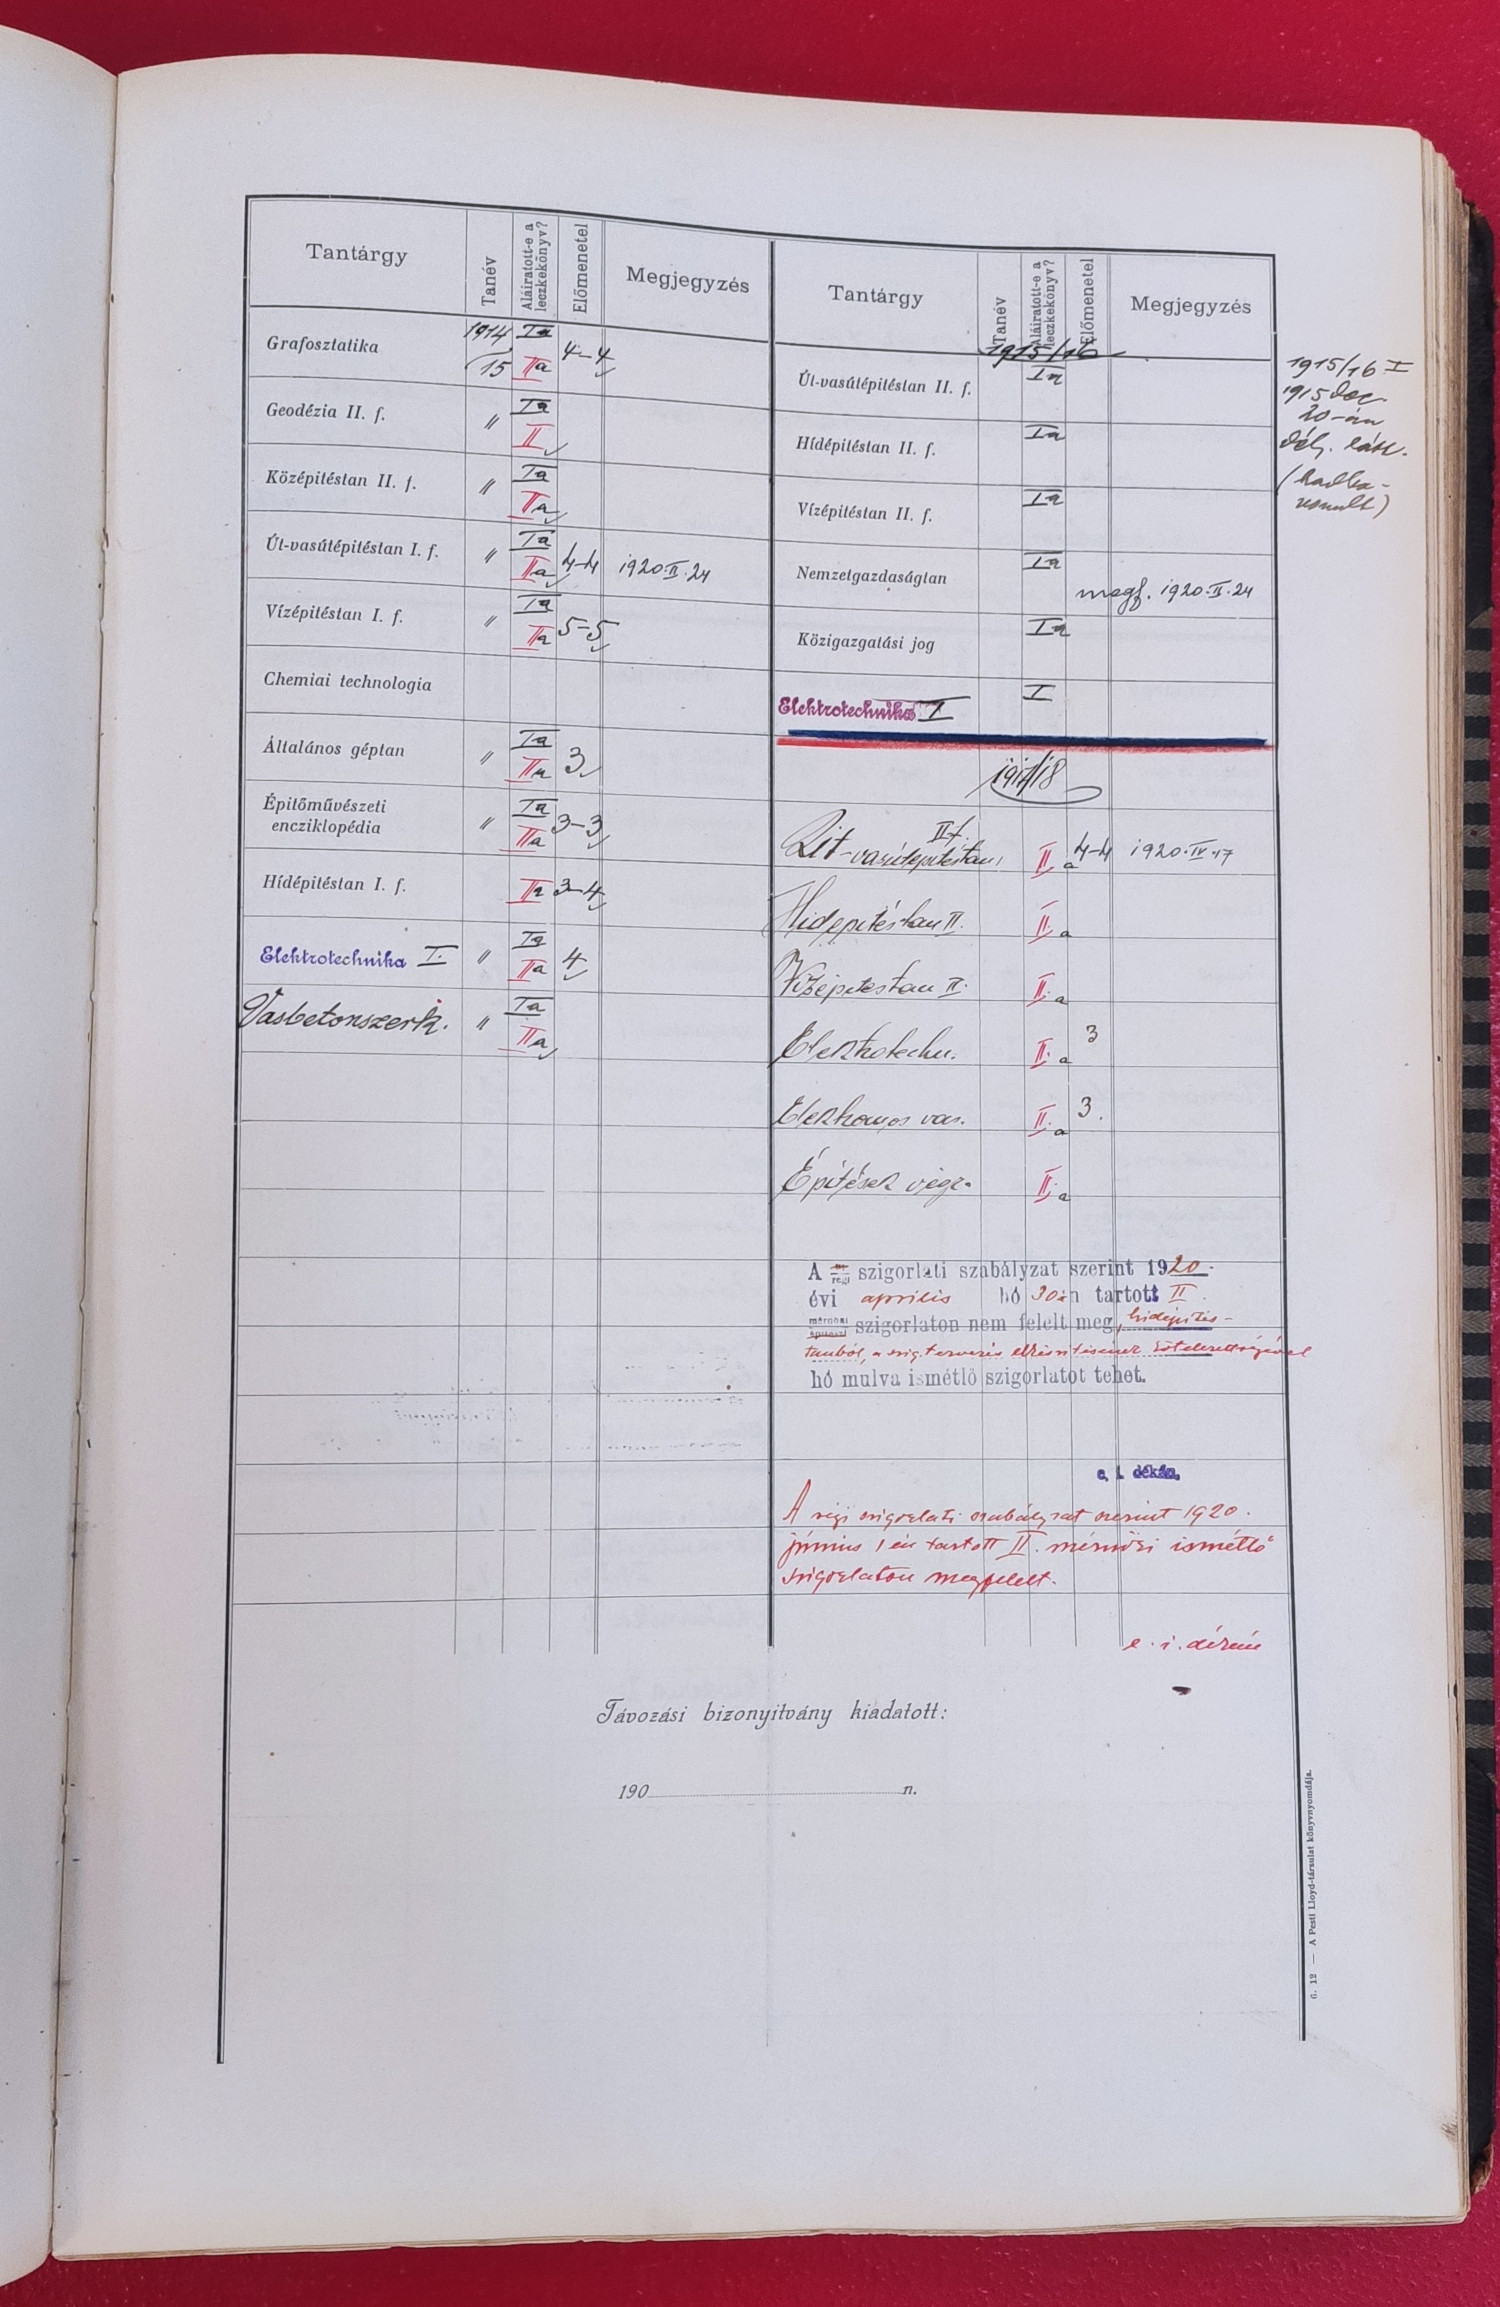 Tantárgy Tanév Aláiratott-e a leczkekönyv? Előmenetel Megjegyzés
Grafosztatika 1914/15 Ia IIa 4-4
Geodézia II. f. " Ia II
Középitéstan II. f. " Ia IIa
Út-vasútépitéstan I. f. " Ia IIa 4-4 1920.II.24
Vízépitéstan I. f. " Ia IIa 5-5
Chemiai technologia
Általános géptan " Ia IIa 3
Épitőművészeti
encziklopédia " Ia IIa 3-3
Hídépitéstan I. f. IIa 3-4
Elektrotechnika I. " Ia IIa 4
Vasbetonszerk. " Ia IIa
Tantárgy Tanév Aláiratott-e a leczkekönyv? Előmenetel Megjegyzés
1915/16
Út-vasútépitéstan II. f. Ia
Hídépitéstan II. f. Ia
Vízépitéstan II. f. Ia
Nemzetgazdaságtan Ia megf. 1920.II.24
Közigazgatási jog Ia
Elektrotechnika I I
1917/18
Út-vasútépitéstan II f. II a 4-4 1920.IV.17
Hidépitéstan II. II. a
Vizépitéstan II. II. a
Elektrotechn. II. a 3
Elektromos vas. II. a 3.
Építések végr. II. a
A régi szigorlati szabályzat szerint 1920.
évi április hó 30án tartott II.
mérnöki
építészi szigorlaton nem felelt meg, hidépités-
tanból, a szig. tervezés elkészitésének kötelezettségével
hó mulva ismétlő szigorlatot tehet.
e. i. dékán.
A régi szigorlati szabályzat szerint 1920.
június 1 én tartott II. mérnöki ismétlő
szigorlaton megfelelt.
e. i. dékán
1915/16 I
1915 dec.
20-án
(hadba-
vonult)
Távozási bizonyitvány kiadatott:
190 n.
G. 12 — A Pesti Lloyd-társulat könyvnyomdája.